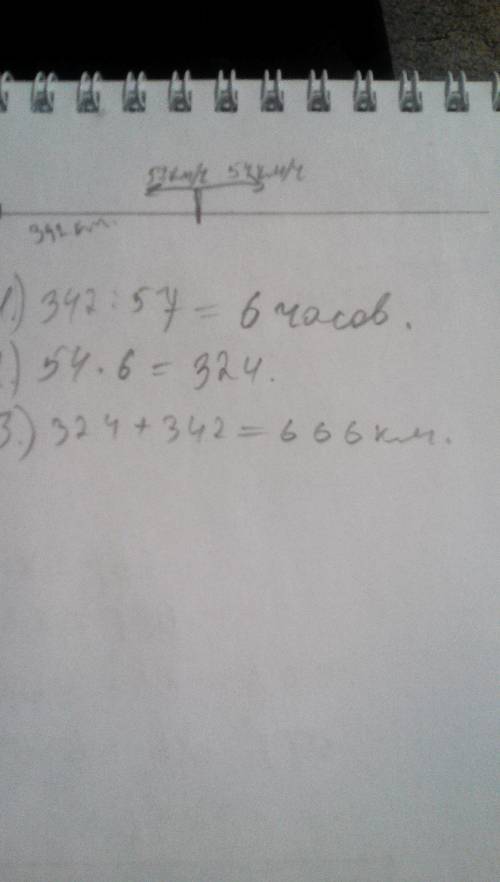 57км/ч 54км/ч
342 км.
1.) 342:57 = 6 часов.
2) 54·6 = 324.
3.) 324+342=666км.